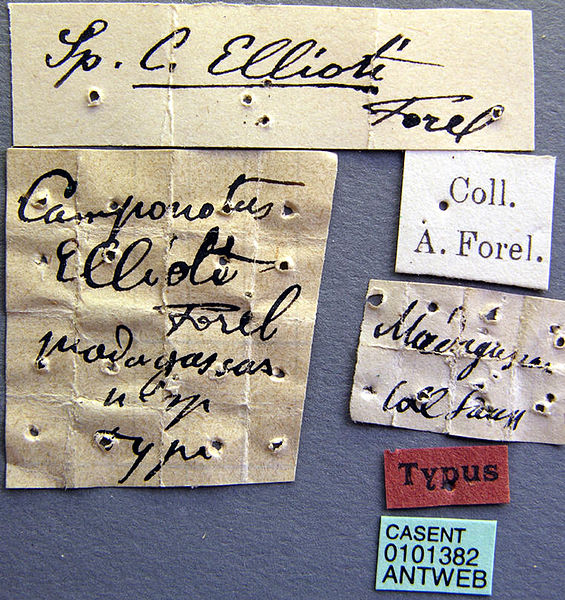 Sp. C. Ellioti
Forel
Camponotus
Ellioti
Forel
madagascar
n sp
type
Coll.
A. Forel.
Madagascar
Coll
Typus
CASENT
0101382
ANTWEB